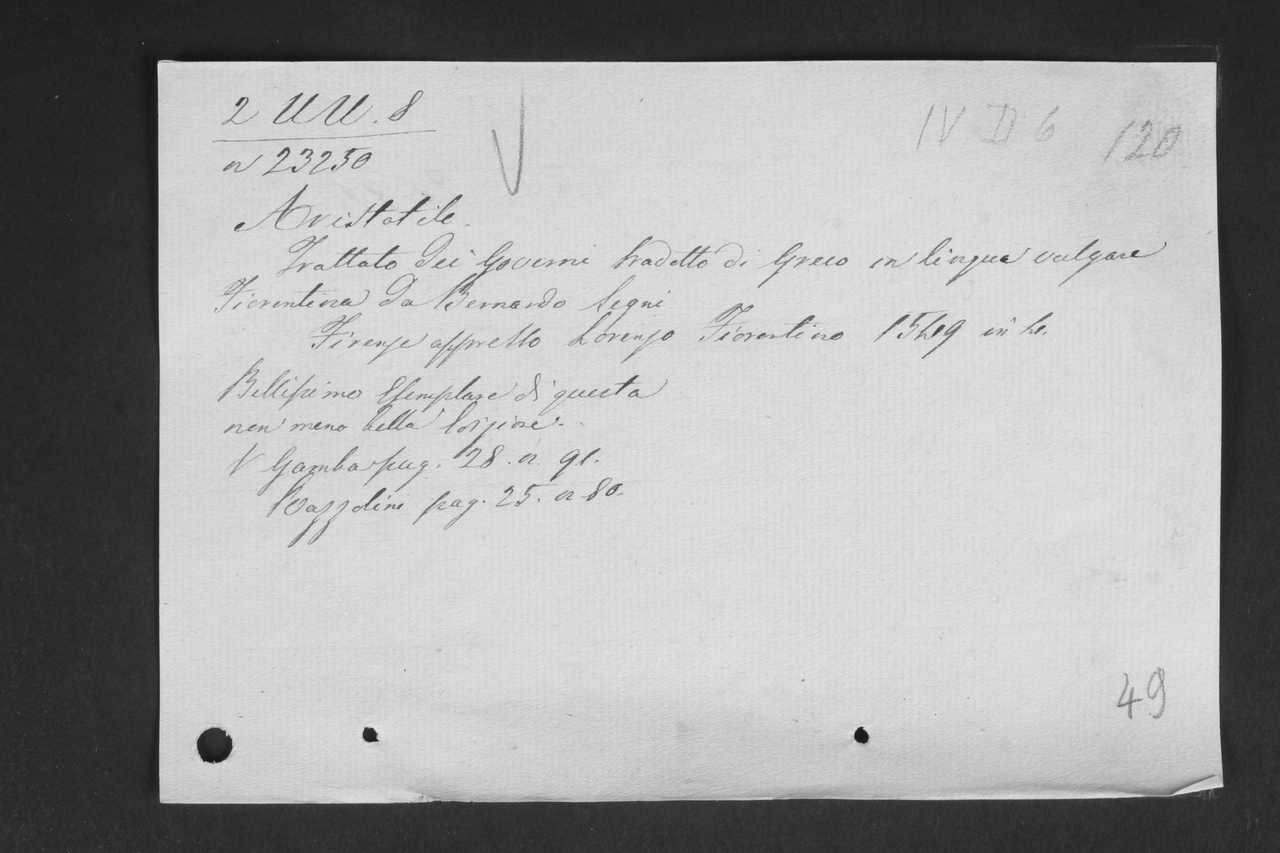 2 UU. 8
IV D 6
120
n 23250
Aristotile.
Trattato dei Governi tradotto di Greco in lingua vulgare
Fiorentina da Bernardo Segni
Firenze appresso Lorenzo Fiorentino 1549 in 4.
Bellissimo Esemplare di questa
non meno bella Edizione.
V Gamba pag. 28. n 91.
Razzolini pag. 25. n 80.
49